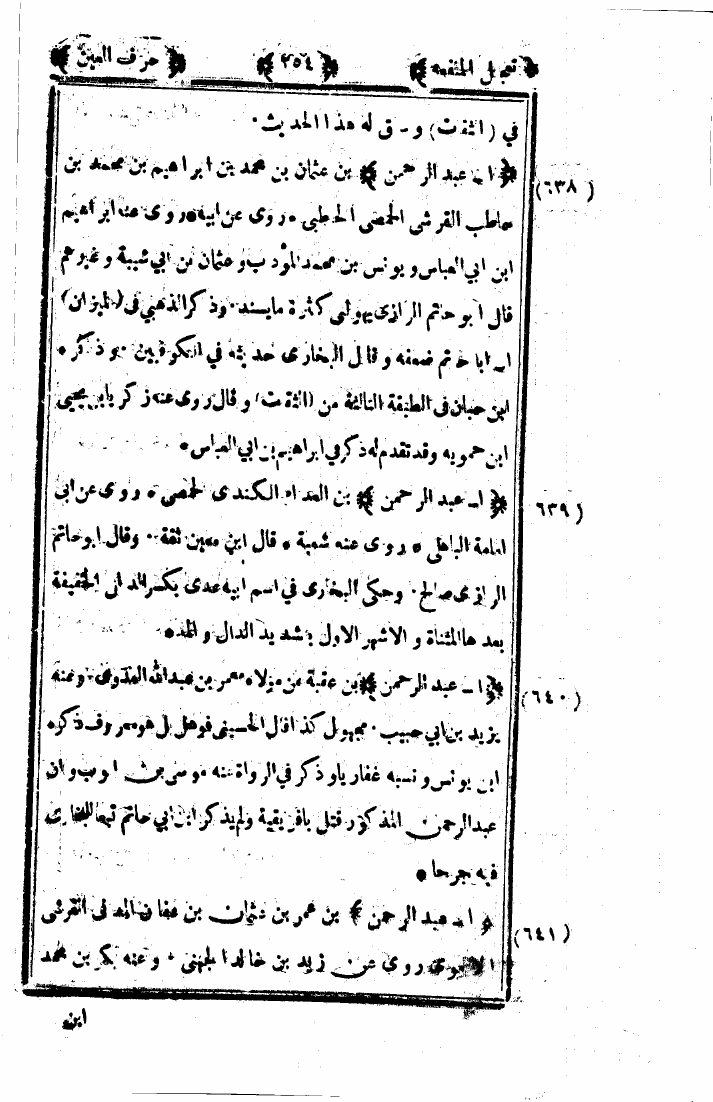 ﴿تعجيل المنفعة﴾ ﴿٢٥٤﴾ ﴿حرف العين﴾
في (الثقات) وساق له هذا الحديث·
(٦٣٨) ﴿ا ـ عبد الرحمن﴾ بن عثمان بن محمد بن ابراهيم بن محمد بن
حاطب القرشى الحاطبي * روى عن ابيه * روى عنه ابراهيم
ابن ابي العباس و يونس بن محمد المؤدب و عثمان بن ابي شيبة و غيرهم
قال ابو حاتم الرازى يهولنى كثرة ما يسند· وذكر الذهبي فى (الميزان)
ان ابا حاتم ضعفه و قال البخارى حديثه في الكوفيين · وذكره
ابن حبان فى الطبقة الثالثة من (الثقات) و قال روى عنه زكريا بن يحيى
ابن حمويه وقد تقدم له ذكر في ابراهيم بن ابي العباس *
(٦٣٩) ﴿ا ـ عبد الرحمن﴾ بن العداء الكندى الحمصي * روى عن ابى
امامة الباهلى * روى عنه شعبة * قال ابن معين ثقة·· وقال ابو حاتم
الرازى صالح· وحكى البخارى في اسم ابيه عدى بكسر الدال الخفيفة
بعدها المثناة و الاشهر الاول بتشديد الدال و المد *
(٦٤٠) ﴿ا ـ عبد الرحمن﴾ بن عقبة عن مولاه معمر بن عبدالله العدوى· وعنه
يزيد بن ابي حبيب· مجهول كذا قال الحسينى فوهل بل هو معروف ذكره
ابن يونس و نسبه غفاريا و ذكر في الرواة عنه موسى بن ايوب و ان
عبد الرحمن المذكور قتل بافريقية ولم يذكر ابن ابي حاتم تبعا للبخارى
فيه جرحا *
(٦٤١) ﴿ا ـ عبد الرحمن﴾ بن عمر بن عثمان بن عفان المدنى القرشى
الاموى روى عن زيد بن خالد الجهنى· وعنه بكر بن محمد
ابنه